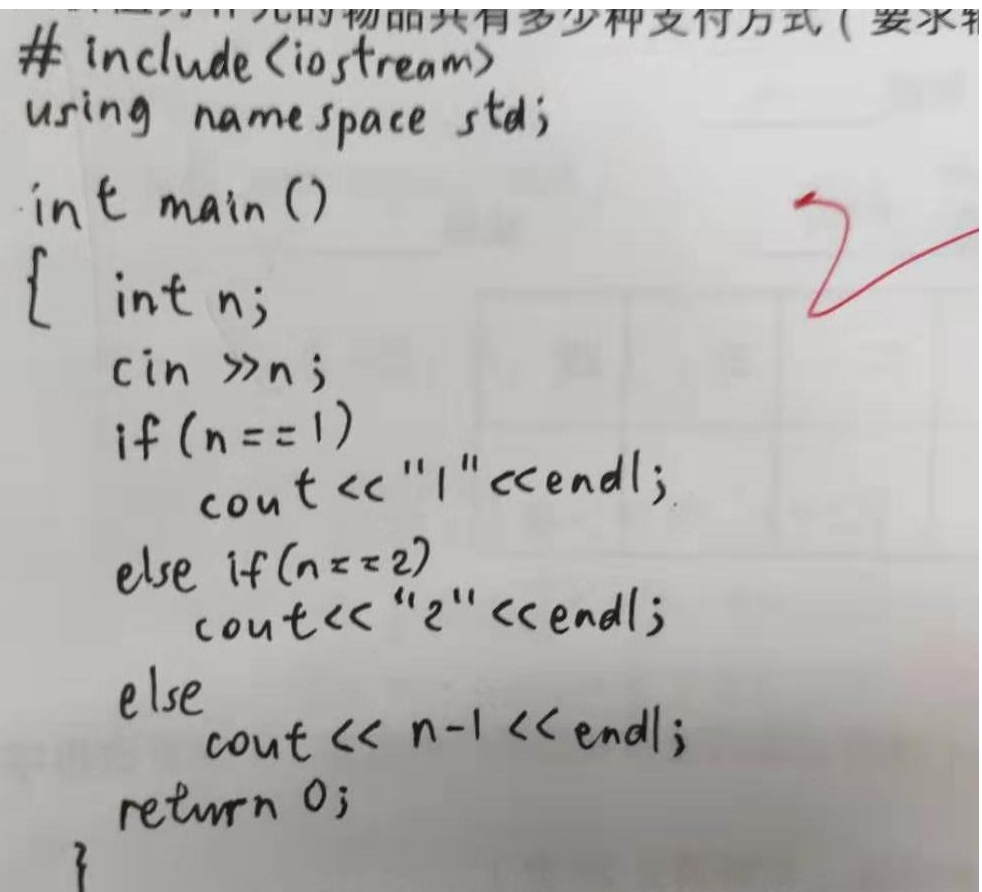 的物品共有多少种支付方式(要求
# include<iostream>
using namespace std;
int main()
{ int n;
cin >>n;
if(n==1)
cout<<"1"<<endl;
else if(n==2)
cout<<"2"<<endl;
else
cout << n-1 << endl;
return 0;
}